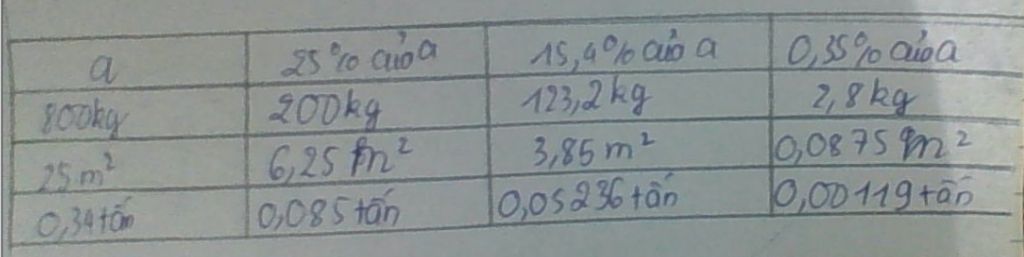 a 25% của a 15,4% của a 0,35% của a
800kg 200kg 123,2kg 2,8kg
25m² 6,25 m² 3,85 m² 0,0875 m²
0,34 tấn 0,085 tấn 0,05236 tấn 0,00119 tấn